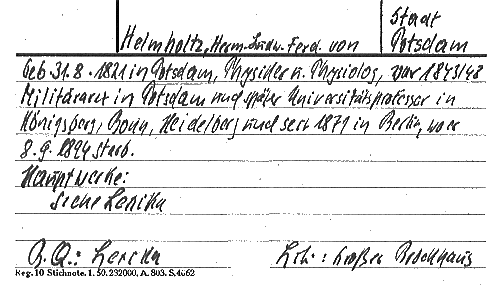 Stadt
Helmholtz, Herm. Ludw. Ferd. von Potsdam
geb 31.8.1821 in Potsdam, Physiker u. Physiolog, war 1843/48
Militärarzt in Potsdam und später Universitätsprofessor in
Königsberg, Bonn, Heidelberg und seit 1871 in Berlin, wo er
8.9.1894 starb.
Hauptwerke:
Siehe Lexika
B.Q.: Lexika Lit.: Großer Brockhaus
Reg. 10 Stichnote. 1. 50. 232000. A. 803. S. 4662